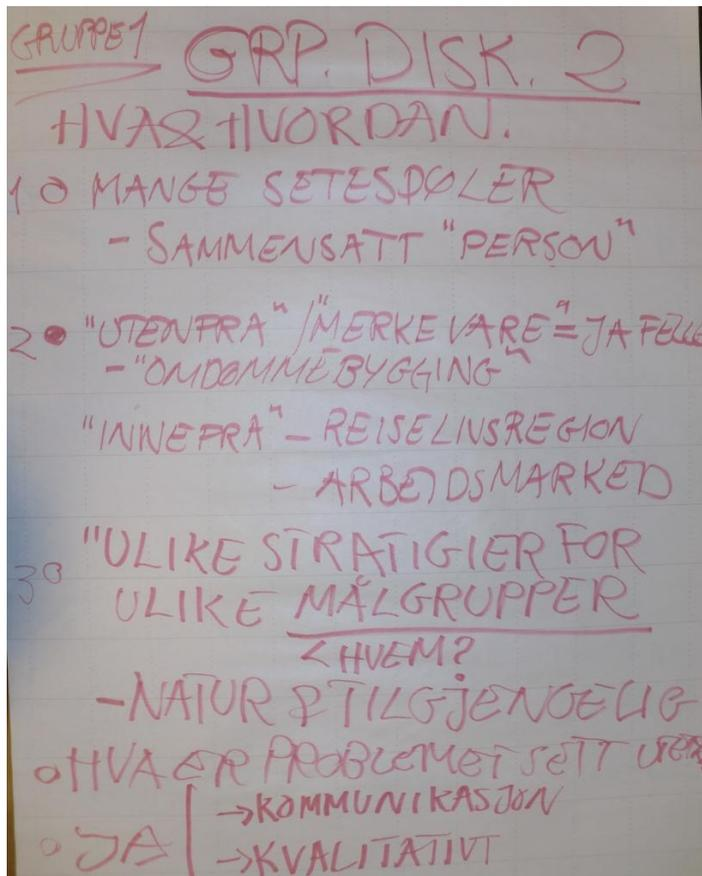 GRUPPE 1
GRP. DISK. 2
HVA & HVORDAN.
1 o MANGE SETESDØLER
- SAMMENSATT "PERSON"
2 • "UTENFRA" / "MERKEVARE" = JA FELLE
- "OMDØMMEBYGGING"
"INNEFRA" - REISELIVSREGION
- ARBEIDSMARKED
3 o "ULIKE STRATIGIER FOR
ULIKE MÅLGRUPPER
< HVEM?
- NATUR & TILGJENGELIG
o HVA ER PROBLEMET SETT
o JA | → KOMMUNIKASJON
→ KVALITATIVT